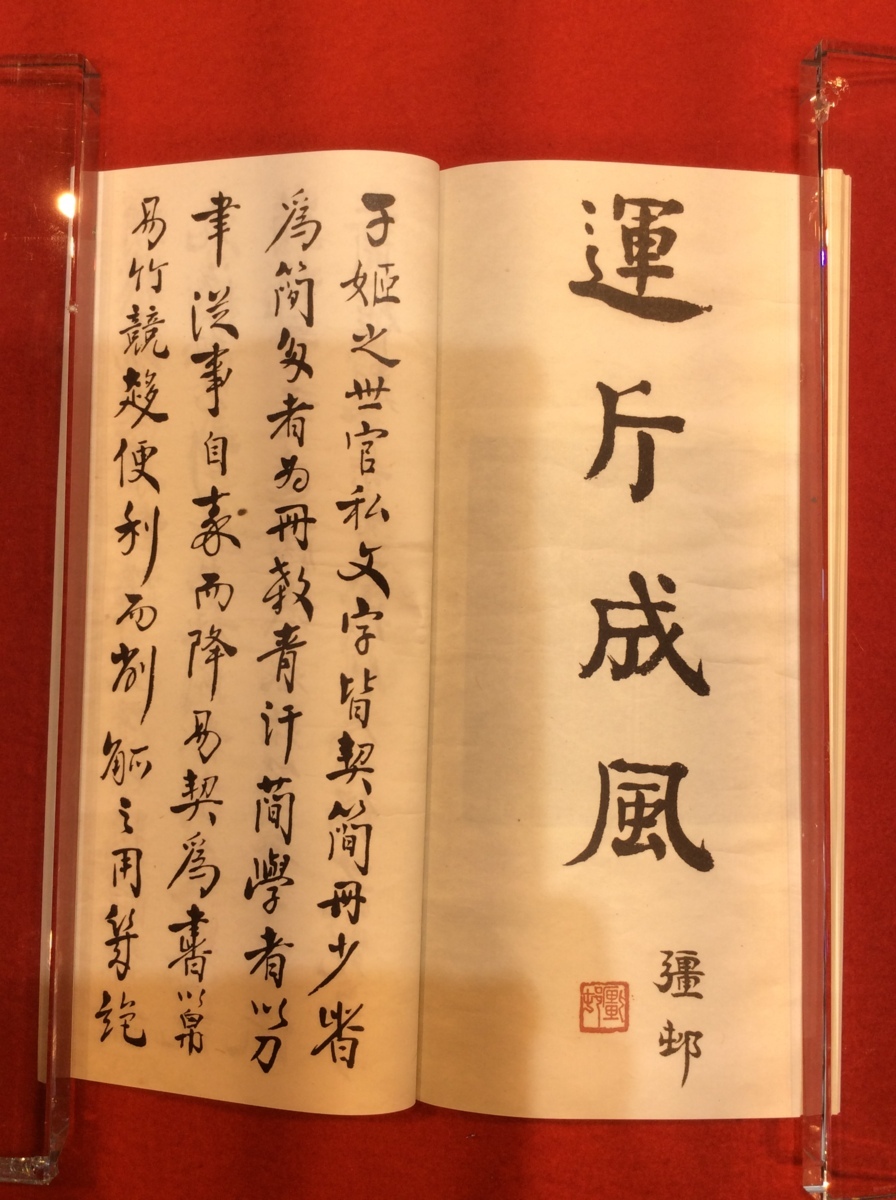 運斤成風
彊邨
子姬之世官私文字皆契簡冊少者
為簡多者為冊殺青汗簡學者以刀
聿從事自秦而降易契為書以帛
易竹競趨便利而削觚之用幾絕